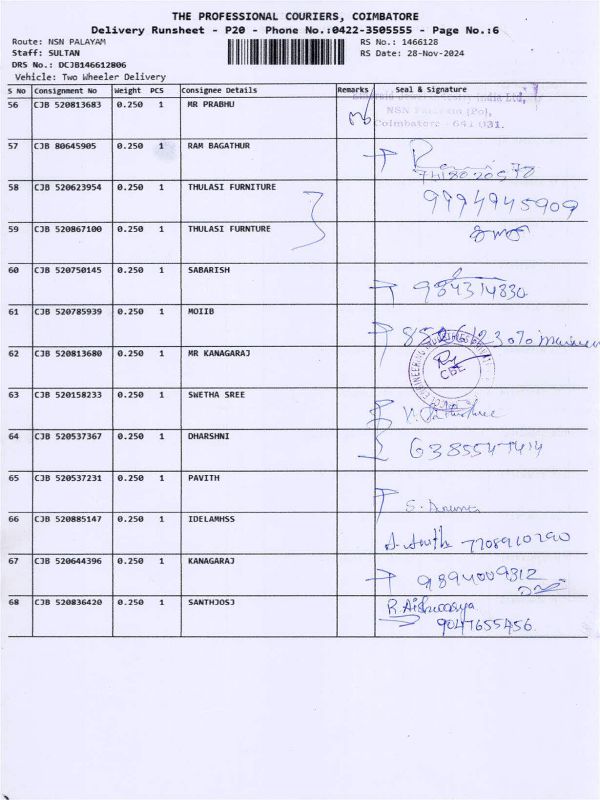 THE PROFESSIONAL COURIERS, COIMBATORE
Delivery Runsheet - P20 - Phone No.:0422-3505555 - Page No.:6
Route: NSN PALAYAM RS No.: 1466128
Staff: SULTAN RS Date: 28-Nov-2024
DRS No.: DCJB146612806
Vehicle: Two Wheeler Delivery
S No Consignment No Weight PCS Consignee Details Remarks Seal & Signature
India Ltd,
56 CJB 520813683 0.250 1 MR PRABHU
NSN (Po),
Coimbatore - 641 031.
57 CJB 80645905 0.250 1 RAM BAGATHUR
58 CJB 520623954 0.250 1 THULASI FURNITURE
9994945909
59 CJB 520867100 0.250 1 THULASI FURNTURE
60 CJB 520750145 0.250 1 SABARISH
984314830
61 CJB 520785939 0.250 1 MOIIB
62 CJB 520813680 0.250 1 MR KANAGARAJ
ENGINEERING
CBE
63 CJB 520158233 0.250 1 SWETHA SREE
64 CJB 520537367 0.250 1 DHARSHNI
65 CJB 520537231 0.250 1 PAVITH
66 CJB 520885147 0.250 1 IDELAMHSS
7708910290
67 CJB 520644396 0.250 1 KANAGARAJ
9894009312
68 CJB 520836420 0.250 1 SANTHJOSJ
R. Aishwarya
9047655456